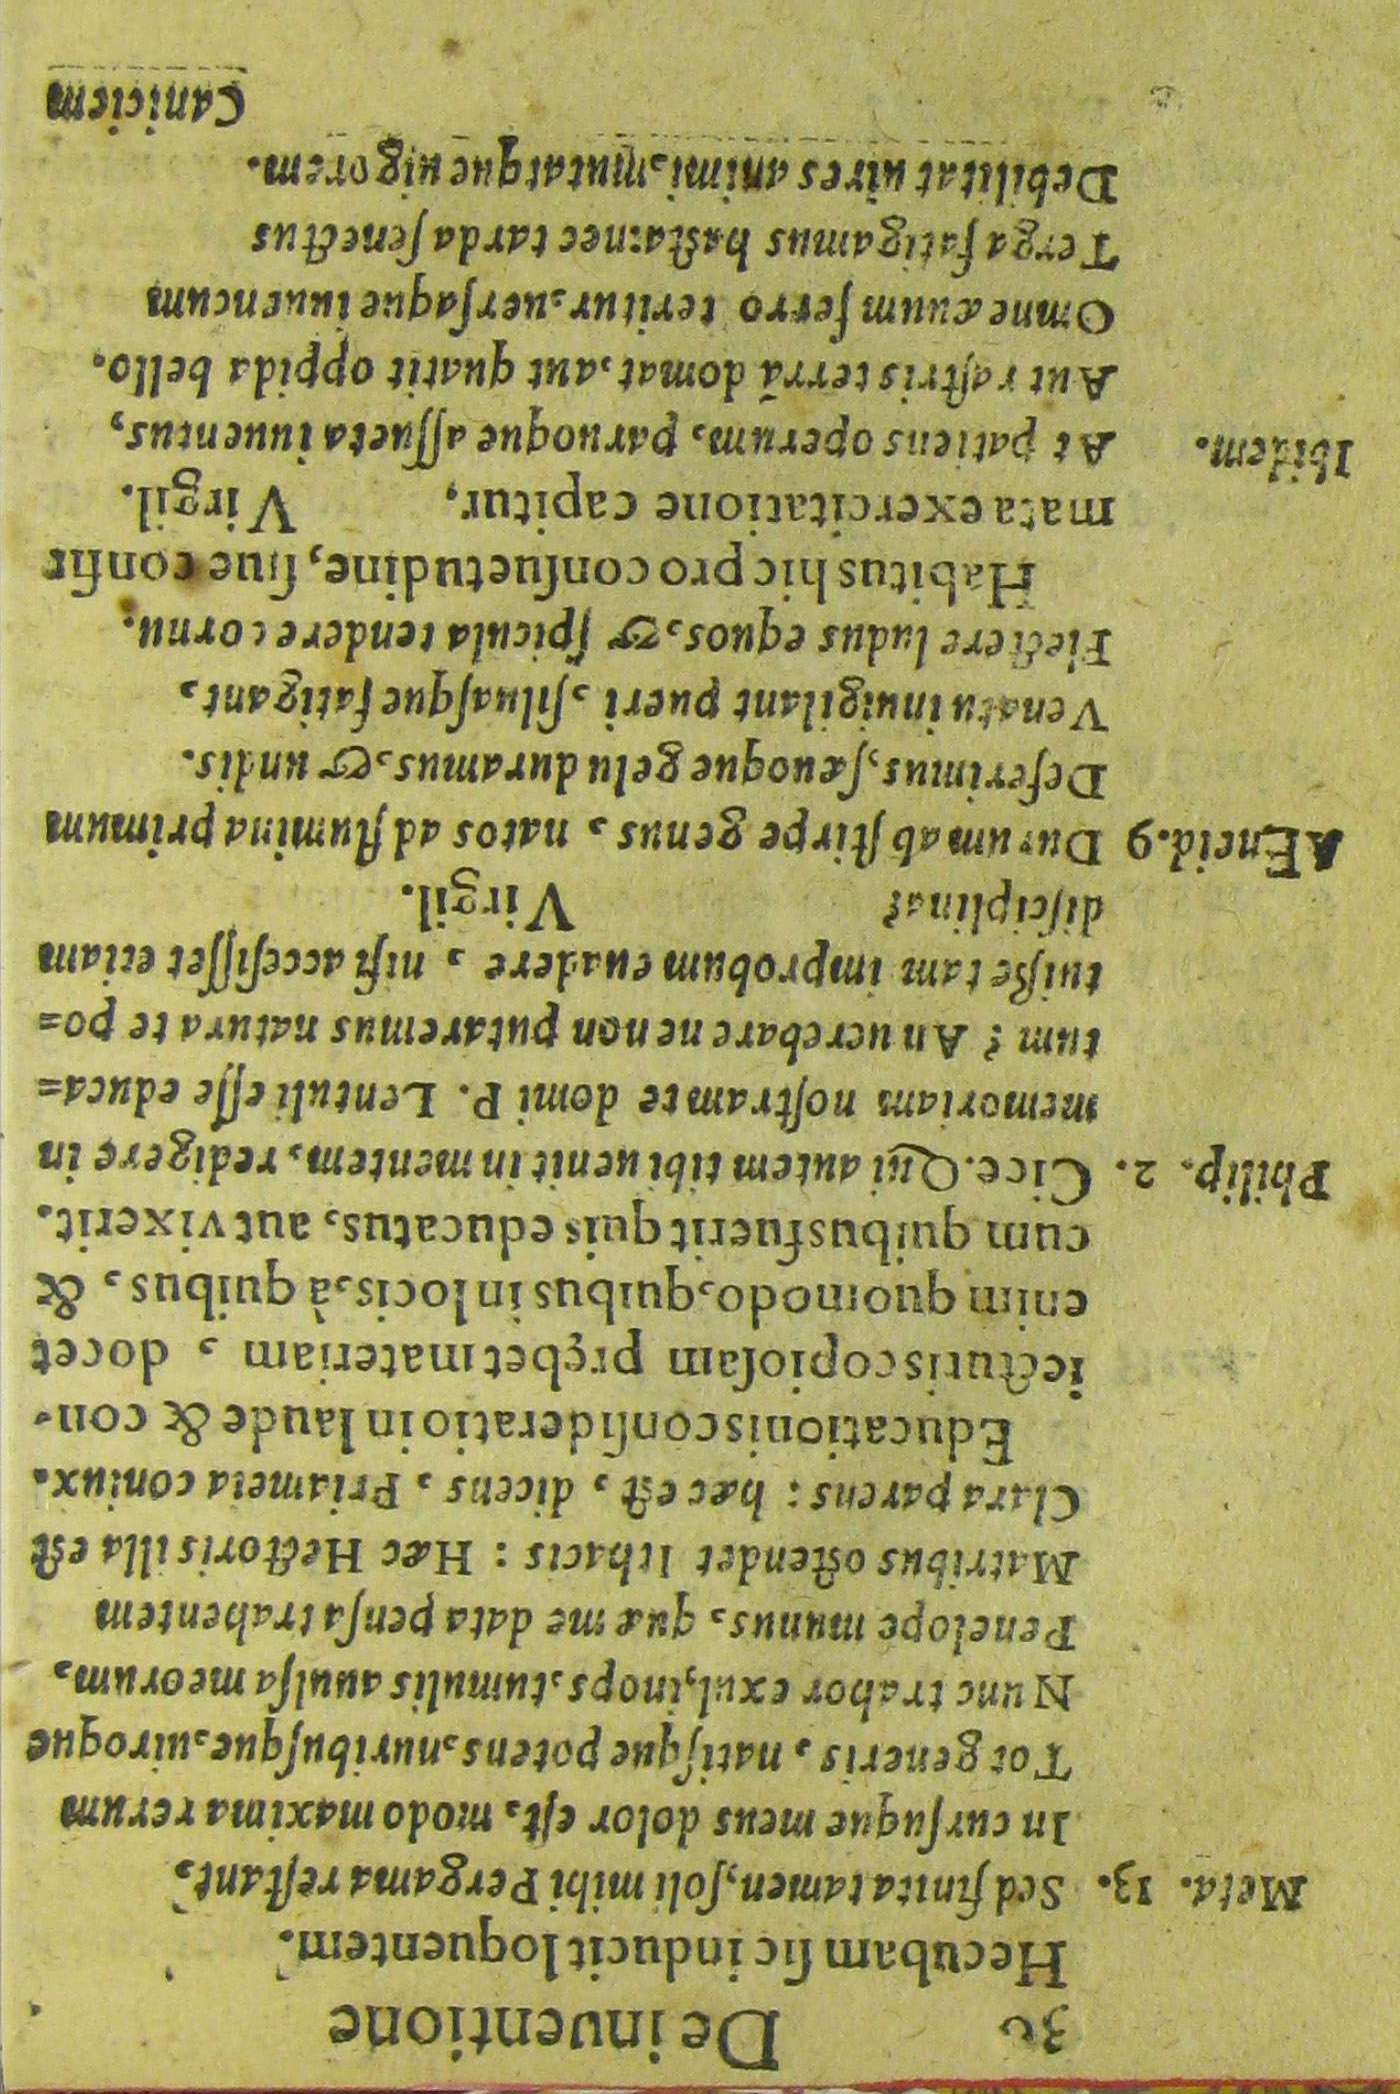 30 De inuentione
Hecubam sic inducit loquentem.
Meta. 13. Sed finita tamen, soli mihi Pergama restant,
In cursuque meus dolor est, modo maxima rerum
Tot generis, natisque potens, nuribusque, uiroque
Nunc trahor exul, inops, tumulis auulsa meorum,
Penelope munus, quæ me data pensa trahentem
Matribus ostendet Ithacis: Hæc Hectoris illa est
Clara parens: hæc est, dicens, Priameia coniux.
Educationis consideratio in laude & con-
iecturis copiosam prębet materiam, docet
enim quomodo, quibus in locis, à quibus, &
cum quibus fuerit quis educatus, aut vixerit.
Philip. 2. Cice. Qui autem tibi uenit in mentem, redigere in
memoriam nostram te domi P. Lentuli esse educa=
tum? An uerebare ne non putaremus natura te po=
tuiße tam improbum euadere, nisi accesisset etiam
disciplina? Virgil.
AEneid.9 Durum ab stirpe genus, natos ad flumina primum
Deferimus, sæuoque gelu duramus, & undis.
Venatu inuigilant pueri, siluasque fatigant,
Flectere ludus equos, & spicula tendere cornu.
Habitus hic pro consuetudine, siue confir
mata exercitatione capitur. Virgil.
Ibidem. At patiens operum, paruoque assueta iuuentus,
Aut rastris terrã domat, aut quatit oppida bello.
Omne æuum ferro teritur, uersaque iuuencum
Terga fatigamus hasta: nec tarda senectus
Debilitat uires animi, mutatque uigorem.
Caniciem